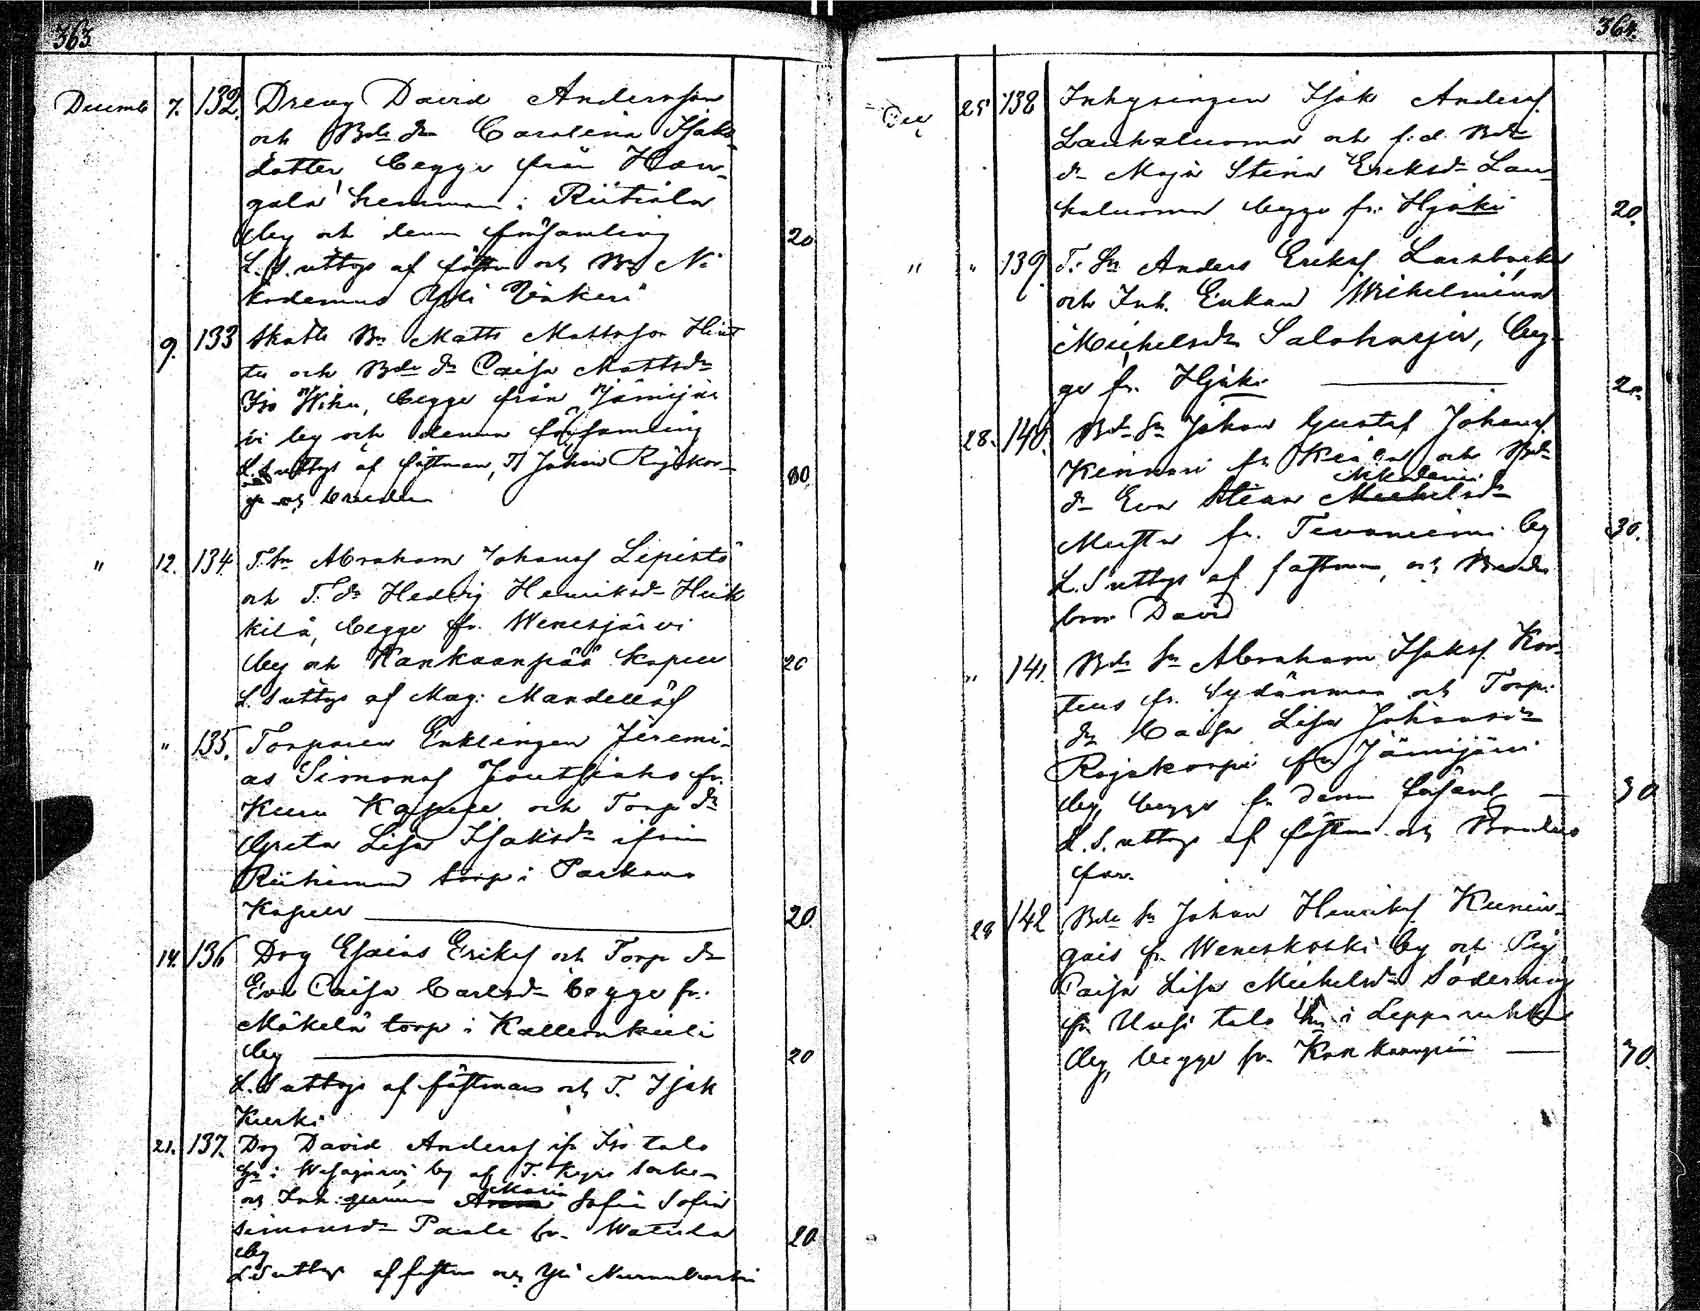 363
Decemb 7. 132. Dreng David Andersson
och Bde dr Carolina Isaks
dotter, begge från Han-
gala hemman i Riitiala
by och denna församling 20
L. S. uttogs af fästm och Bn Ni
kodemus Yli Wäkeri
9. 133 Skatte Bn Matts Mattsson Hiit
te och Bde dr Caisa Mattsdr
Iso Wihu, begge från Jämijär
vi by och denna församling
L. S uttogs af fästman, Johan Rajskor- 30.
pi och bruden
" 12. 134. T. Sn Abraham Johanss Lepistö
och T. dr Hedvig Henriksdr Heik
kilä, begge fr. Wenesjärvi
by och Kankaanpää Kapell 20
L. S uttogs af Mag: Mandellöf
" 135. Torparen Enklingen Jeremi-
as Simonss Joutsiaho fr.
Kuru Kapell och Torp dr
Greta Lisa Isaksdr ifrån
Riihimä torp i Parkano
Kapell 20.
14. 136 Dng Esaias Eriks och Torp dr
Eva Caisa Carlsdr begge fr.
Mäkelä torp i Kallionkieli
by 20
L. S uttogs af fästman och T. Isak
Kurki
21. 137. Dng David Anderss ifr Iso talo
hn i Wesajärvi by af T. Kyro socken
och Inh: Maria Sofia Sofia
Simonsdr Paale fr. Watula 20.
by
L S uttogs af fästm och Yli Nurmikoski
364.
Dec 25 138 Inhysingen Isak Anderss.
Lauhaluoma och f.d. Bde
dr Maja Stina Eriksdr Lau-
haluoma begge fr. Hjäkis 20.
" " 139. T. Sn Anders Erikss Larsbacka
och Inh. Enkan Wilhelmina
Michelsdr Saloharju, beg-
ge fr. Hjäkis 20.
28. 140. Bde Sn Johan Gustaf Johanss.
Kinnari fr. och Bde
dr Eva Stina Nikodemi Michelsdr
Musta fr. Tevaniemi by 30.
L. S uttogs af fästman, och Brudens
bror David
" 141. Bde Sn Abraham Isakss. Kor-
teus fr. Sydänmaa och Torp:
dr Caisa Lisa Johansdr
Rajskorpi fr. Jämijärvi
by, begge fr denna församl 30
L. S. uttogs af fästm. och Brudens
far.
28 142 Bde Sn Johan Henrikss Kunin-
gais fr. Weneskoski by och Pig
Caisa Lisa Michelsdr Södermig
fr. Uusi talo hn i Leppäruhka
by, begge fr. Kankaanpää 30.